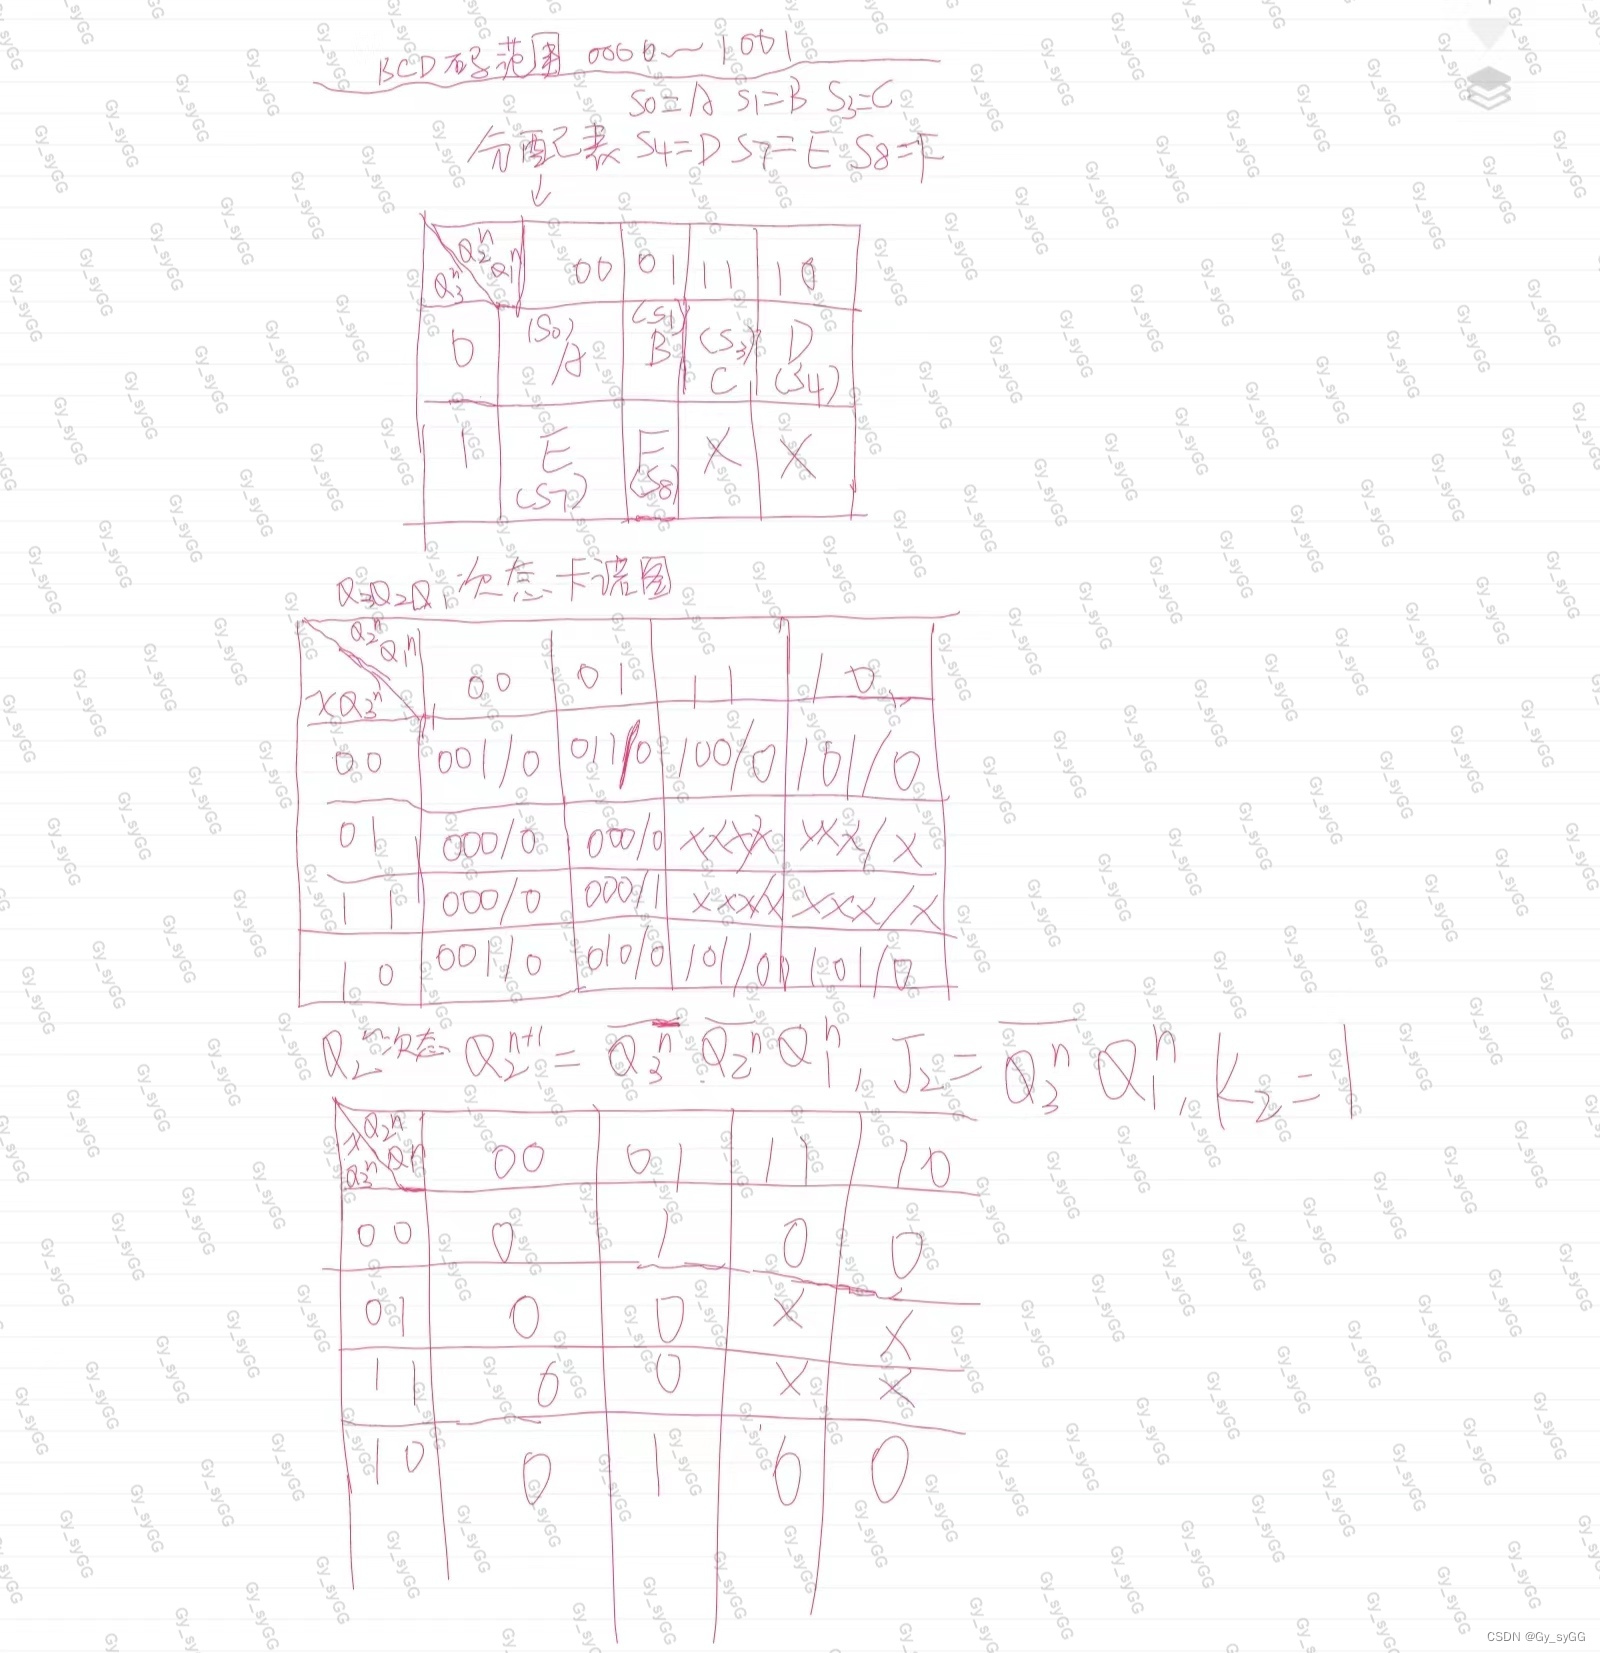 BCD码范围 0000~1001
S0=A S1=B S3=C
分配表 S4=D S7=E S8=F
Q2^n Q1^n 00 01 11 10
Q3^n
0 (S0) A (S1) B (S3) C D (S4)
1 E (S7) F (S8) X X
Q3Q2Q1次态卡诺图
Q2^n Q1^n 00 01 11 10
XQ3^n
00 001/0 011/0 100/0 101/0
01 000/0 000/0 XXX/X XXX/X
11 000/0 000/1 XXX/X XXX/X
10 001/0 010/0 101/0 101/0
Q2的次态 Q2^{n+1} = \overline{Q3^n} \overline{Q2^n} Q1^n, J2 = \overline{Q3^n} Q1^n, K2 = 1
X Q2^n Q1^n 00 01 11 10
Q3^n
00 0 1 0 0
01 0 0 X X
11 0 0 X X
10 0 1 0 0
Gy_syGG
CSDN @Gy_syGG